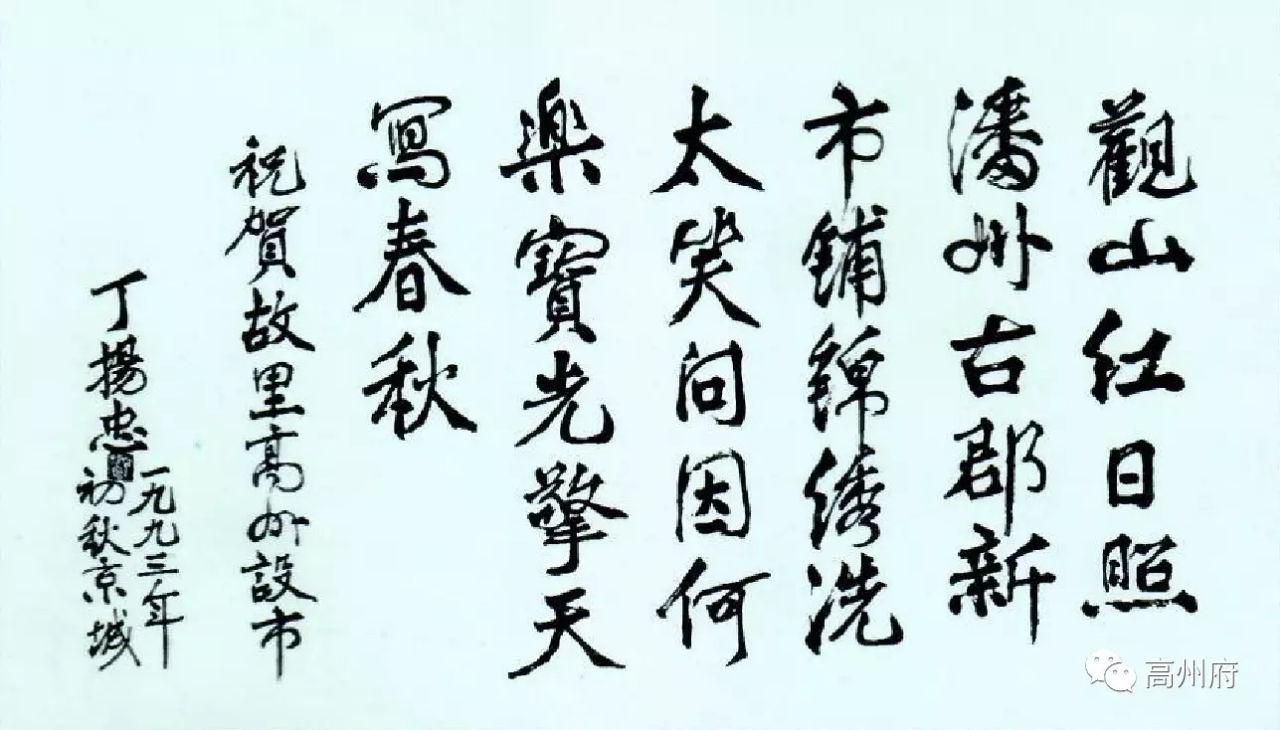 觀山红日照
潘州古郡新
市鋪錦绣洗
太笑问因何
樂寶光擎天
寫春秋
祝賀故里高州設市
丁揚忠
一九九三年
初秋京城
高州府